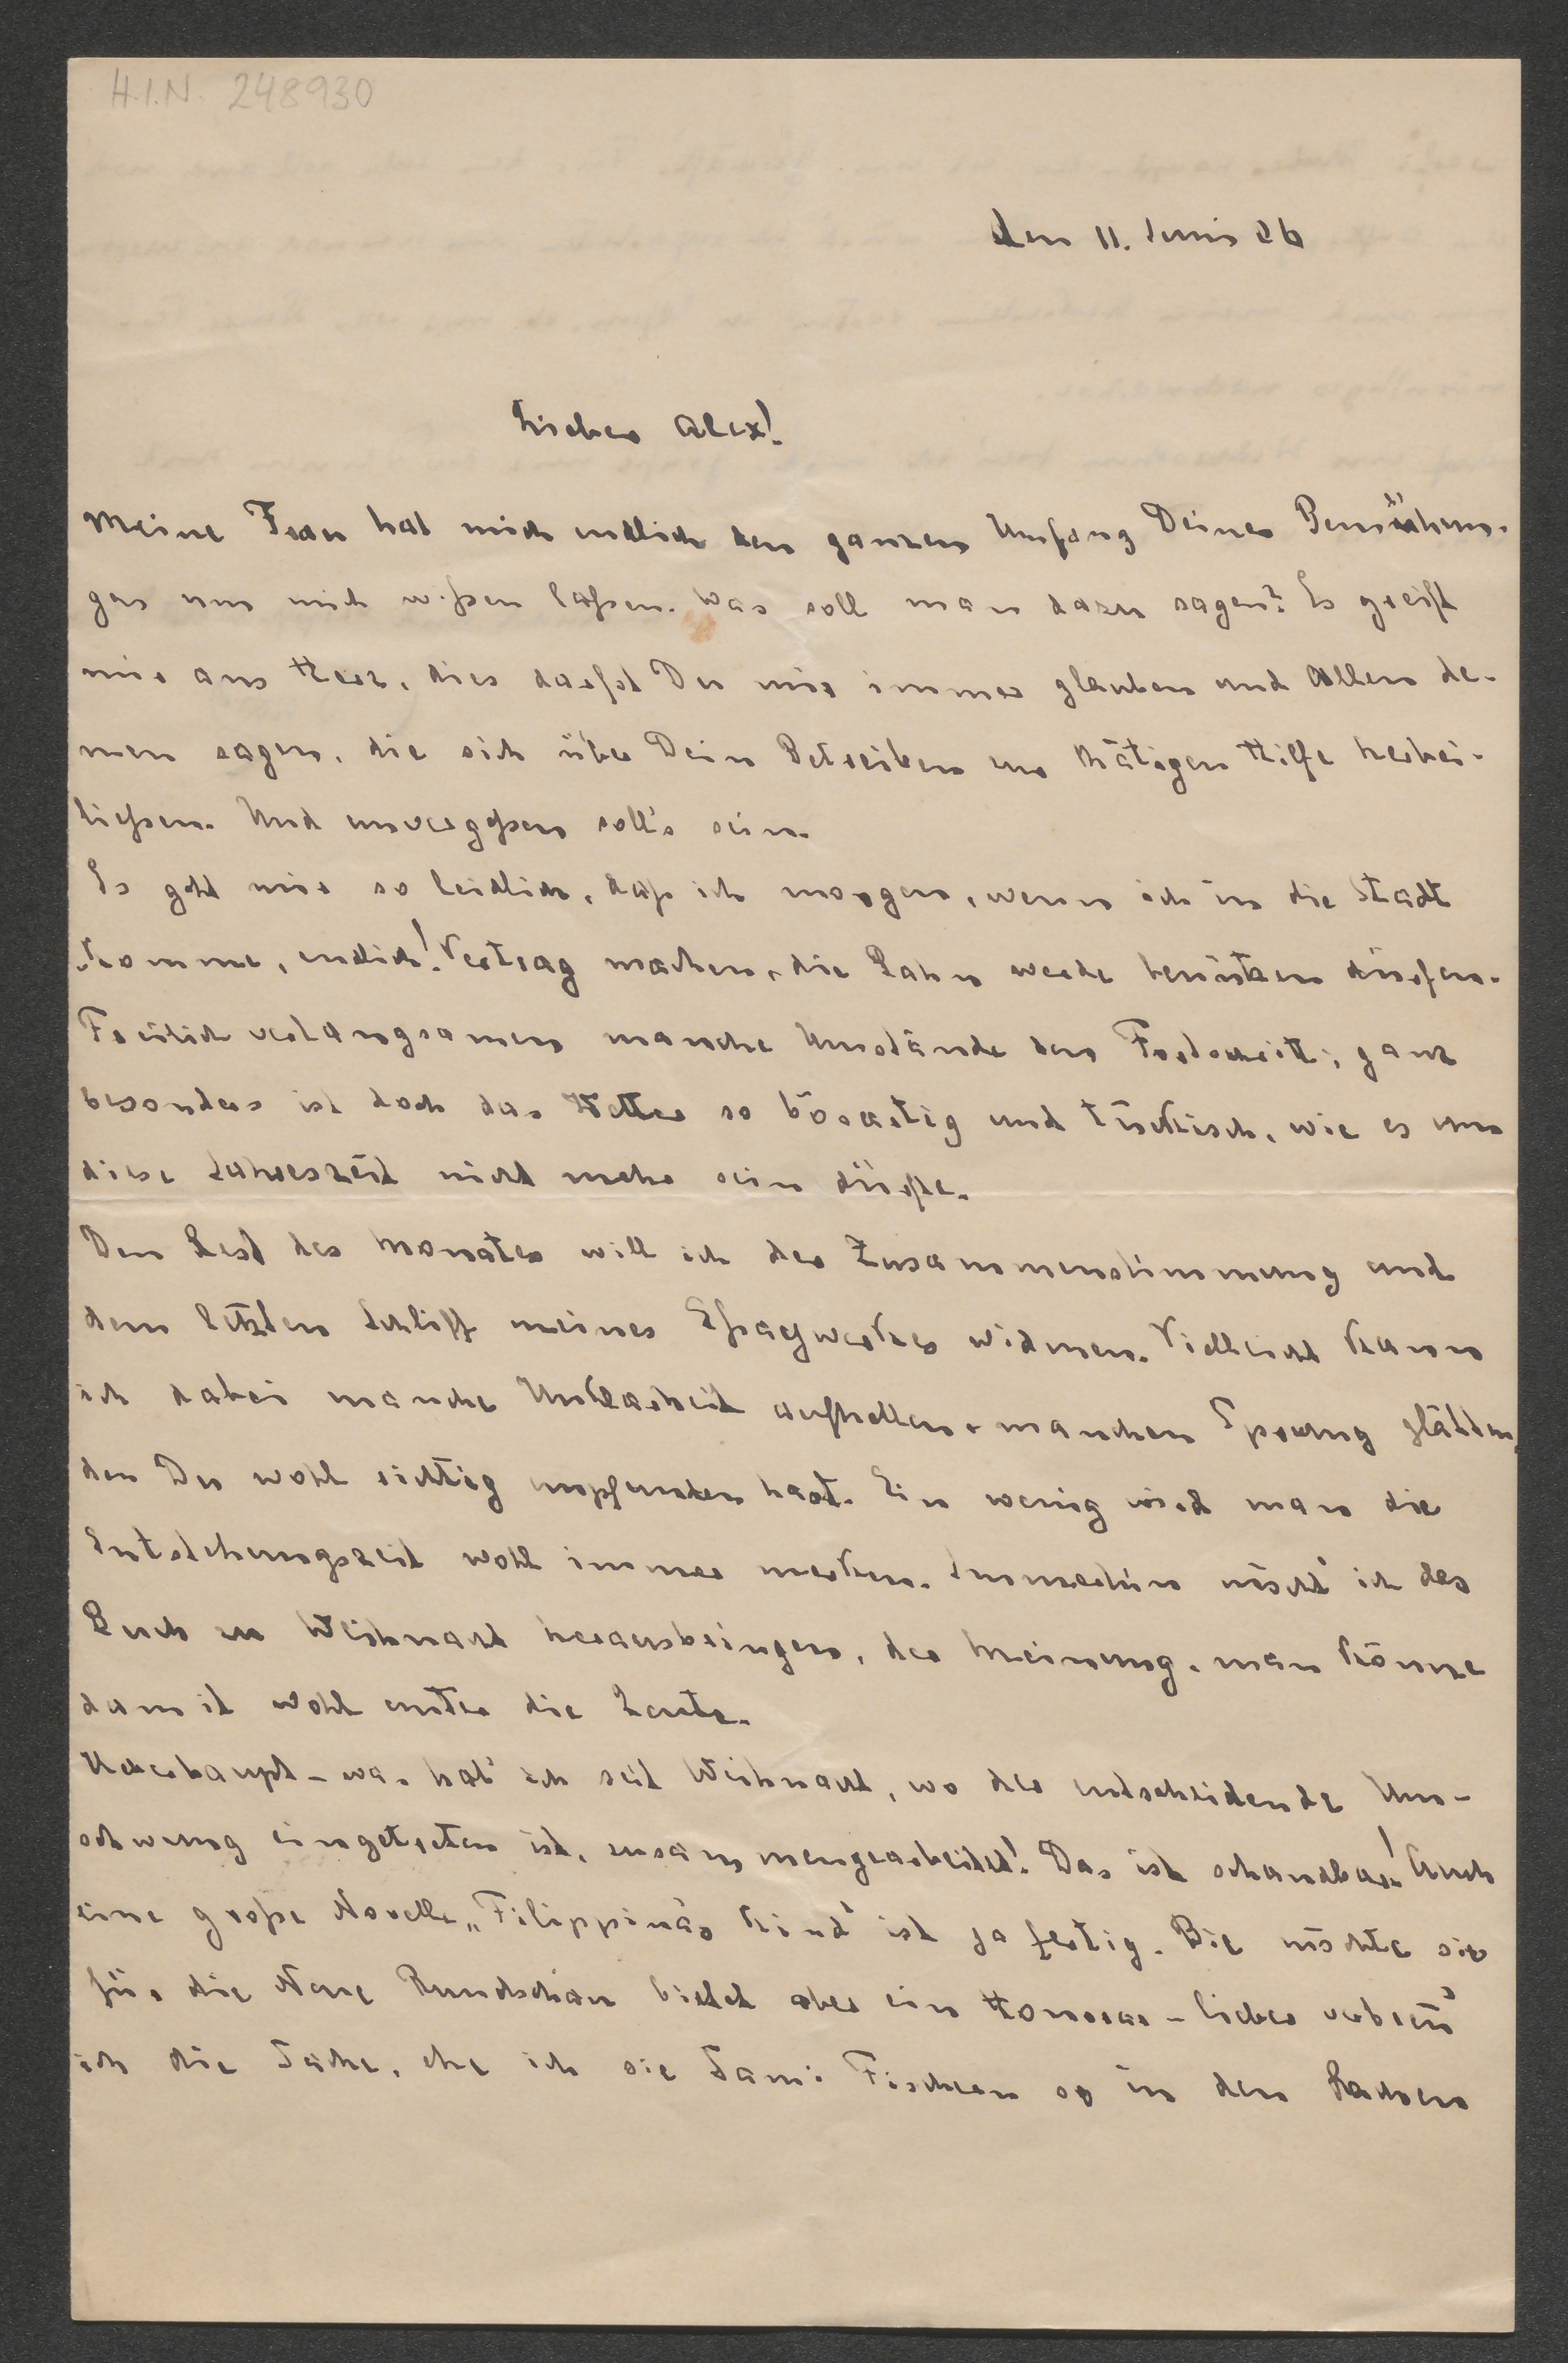 H.I.N. 248930
den 11. Juni 26
Lieber Alex!
Meine Frau hat mich endlich den ganzen Umfang Deiner Bemühun-
gen um mich wißen laßen. Was soll man dazu sagen? Es greift
mir ans Herz, dies darfst Du mir immer glauben und Allen de-
nen sagen, die sich über Dein Betreiben zur thätigen Hilfe herbei-
ließen. Und unvergeßen soll's sein.
Es geht mir so leidlich, daß ich morgen, wenn ich in die Stadt
komme, endlich! Vertrag machen, die Bahn werde benützen dürfen.
Freilich verlangsamen manche Umstände den Fortschritt; ganz
besonders ist doch das Wetter so bösartig und tückisch, wie es um
diese Jahreszeit nicht mehr sein dürfte.
Den Rest des Monates will ich der Zusammenstimmung und
dem letzten Schliff meines Eßaywerkes widmen. Vielleicht kann
ich dabei manche Unklarheit aufhellen, manchen Sprung glätten,
den Du wohl richtig empfunden hast. Ein wenig wird man die
Entstehungszeit wohl immer merken. Immerhin möcht' ich das
Buch zu Weihnacht herausbringen, der Meinung, man könne
damit wohl unter die Leute.
Ueberhaupt – was hab' ich seit Weihnacht, wo der entscheidende Um-
schwung eingetreten ist, zusammengearbeitet! Das ist schandbar! Auch
eine große Novelle „Filippina's Kind" ist ja fertig. Bie möchte sie
für die Neue Rundschau bietet aber ein Honorar – lieber verbrenn'
ich die Sache, ehe ich sie Sami Fischern so in den Rachen